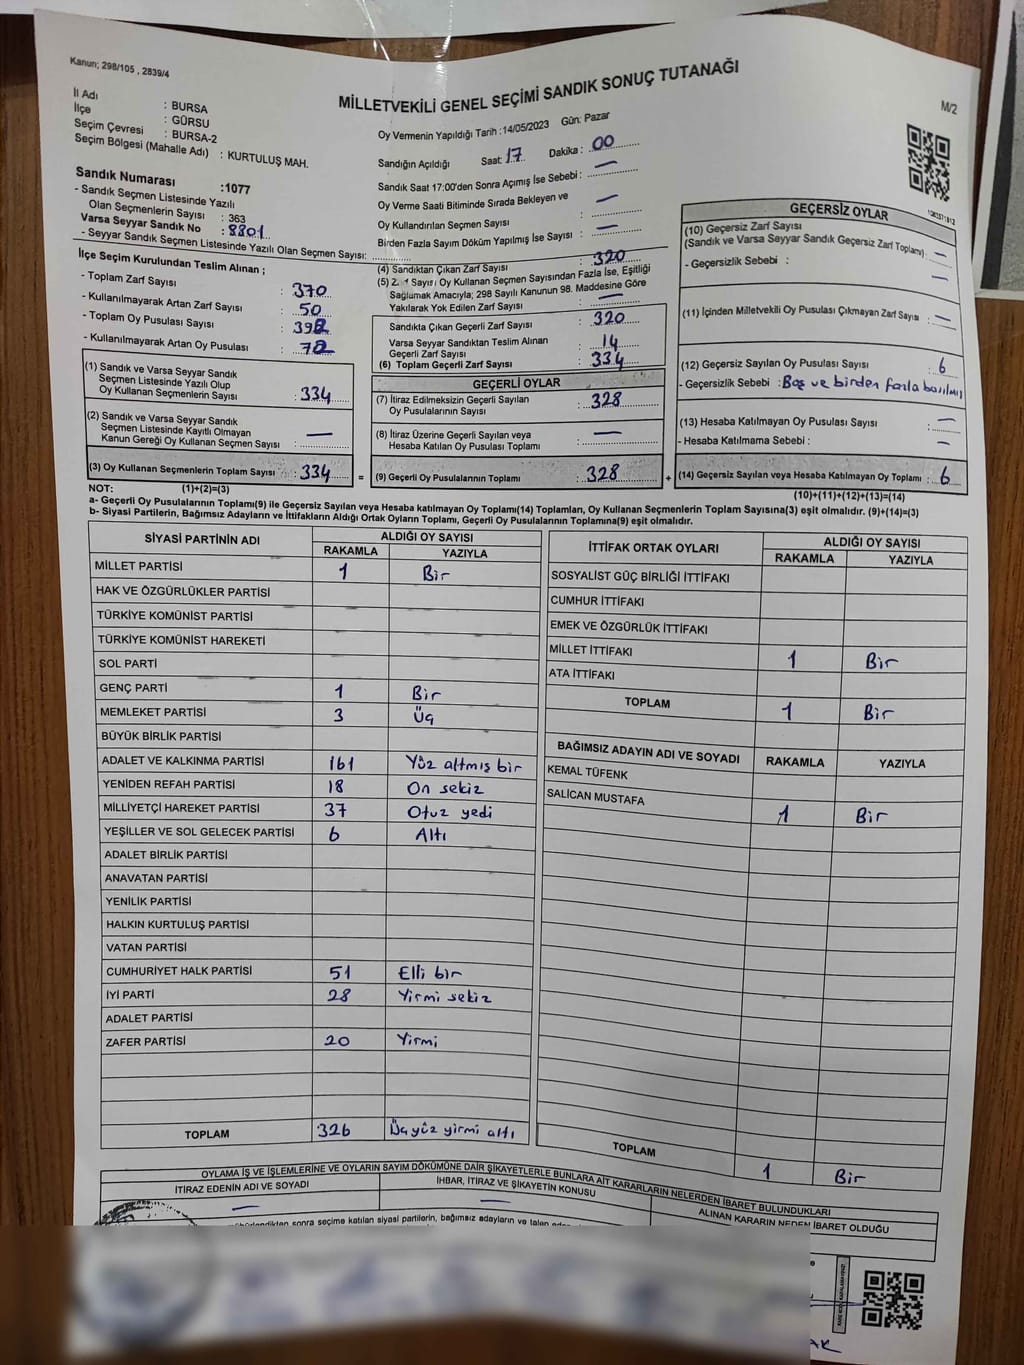 Kanun; 298/105 , 2839/4
MİLLETVEKİLİ GENEL SEÇİMİ SANDIK SONUÇ TUTANAĞI
M/2
İl Adı : BURSA
İlçe : GÜRSU
Seçim Çevresi : BURSA-2
Seçim Bölgesi (Mahalle Adı) : KURTULUŞ MAH.
Sandık Numarası :1077
- Sandık Seçmen Listesinde Yazılı
Olan Seçmenlerin Sayısı : 363
Varsa Seyyar Sandık No : 8801
- Seyyar Sandık Seçmen Listesinde Yazılı Olan Seçmen Sayısı:
İlçe Seçim Kurulundan Teslim Alınan ;
- Toplam Zarf Sayısı : 370
- Kullanılmayarak Artan Zarf Sayısı : 50
- Toplam Oy Pusulası Sayısı : 392
- Kullanılmayarak Artan Oy Pusulası : 72
(1) Sandık ve Varsa Seyyar Sandık
Seçmen Listesinde Yazılı Olup
Oy Kullanan Seçmenlerin Sayısı : 334
(2) Sandık ve Varsa Seyyar Sandık
Seçmen Listesinde Kayıtlı Olmayan
Kanun Gereği Oy Kullanan Seçmen Sayısı : —
(3) Oy Kullanan Seçmenlerin Toplam Sayısı : 334
Oy Vermenin Yapıldığı Tarih :14/05/2023 Gün: Pazar
Sandığın Açıldığı Saat: 17 Dakika : 00
Sandık Saat 17:00'den Sonra Açılmış İse Sebebi : —
Oy Verme Saati Bitiminde Sırada Bekleyen ve
Oy Kullandırılan Seçmen Sayısı : —
Birden Fazla Sayım Döküm Yapılmış İse Sayısı : —
(4) Sandıktan Çıkan Zarf Sayısı : 320
Sayısı Oy Kullanan Seçmen Sayısından Fazla İse, Eşitliği
Sağlamak Amacıyla; 298 Sayılı Kanunun 98. Maddesine Göre
Yakılarak Yok Edilen Zarf Sayısı : —
Sandıkta Çıkan Geçerli Zarf Sayısı : 320
Varsa Seyyar Sandıktan Teslim Alınan
Geçerli Zarf Sayısı : 14
(6) Toplam Geçerli Zarf Sayısı : 334
GEÇERLİ OYLAR
(7) İtiraz Edilmeksizin Geçerli Sayılan
Oy Pusulalarının Sayısı : 328
(8) İtiraz Üzerine Geçerli Sayılan veya
Hesaba Katılan Oy Pusulası Toplamı : —
= (9) Geçerli Oy Pusulalarının Toplamı : 328
GEÇERSİZ OYLAR
(10) Geçersiz Zarf Sayısı
(Sandık ve Varsa Seyyar Sandık Geçersiz Zarf Toplamı) : —
- Geçersizlik Sebebi : —
(11) İçinden Milletvekili Oy Pusulası Çıkmayan Zarf Sayısı : —
(12) Geçersiz Sayılan Oy Pusulası Sayısı : 6
- Geçersizlik Sebebi : Boş ve birden fazla basılmış
(13) Hesaba Katılmayan Oy Pusulası Sayısı : —
- Hesaba Katılmama Sebebi : —
+ (14) Geçersiz Sayılan veya Hesaba Katılmayan Oy Toplamı : 6
NOT: (1)+(2)=(3)
(10)+(11)+(12)+(13)=(14)
a- Geçerli Oy Pusulalarının Toplamı(9) ile Geçersiz Sayılan veya Hesaba katılmayan Oy Toplamı(14) Toplamları, Oy Kullanan Seçmenlerin Toplam Sayısına(3) eşit olmalıdır. (9)+(14)=(3)
b- Siyasi Partilerin, Bağımsız Adayların ve İttifakların Aldığı Ortak Oyların Toplamı, Geçerli Oy Pusulalarının Toplamına(9) eşit olmalıdır.
SİYASİ PARTİNİN ADI ALDIĞI OY SAYISI
RAKAMLA YAZIYLA
MİLLET PARTİSİ 1 Bir
HAK VE ÖZGÜRLÜKLER PARTİSİ
TÜRKİYE KOMÜNİST PARTİSİ
TÜRKİYE KOMÜNİST HAREKETİ
SOL PARTİ
GENÇ PARTİ 1 Bir
MEMLEKET PARTİSİ 3 Üç
BÜYÜK BİRLİK PARTİSİ
ADALET VE KALKINMA PARTİSİ 161 Yüz altmış bir
YENİDEN REFAH PARTİSİ 18 On sekiz
MİLLİYETÇİ HAREKET PARTİSİ 37 Otuz yedi
YEŞİLLER VE SOL GELECEK PARTİSİ 6 Altı
ADALET BİRLİK PARTİSİ
ANAVATAN PARTİSİ
YENİLİK PARTİSİ
HALKIN KURTULUŞ PARTİSİ
VATAN PARTİSİ
CUMHURİYET HALK PARTİSİ 51 Elli bir
İYİ PARTİ 28 Yirmi sekiz
ADALET PARTİSİ
ZAFER PARTİSİ 20 Yirmi
TOPLAM 326 Üçyüz yirmi altı
İTTİFAK ORTAK OYLARI ALDIĞI OY SAYISI
RAKAMLA YAZIYLA
SOSYALİST GÜÇ BİRLİĞİ İTTİFAKI
CUMHUR İTTİFAKI
EMEK VE ÖZGÜRLÜK İTTİFAKI
MİLLET İTTİFAKI 1 Bir
ATA İTTİFAKI
TOPLAM 1 Bir
BAĞIMSIZ ADAYIN ADI VE SOYADI RAKAMLA YAZIYLA
KEMAL TÜFENK
SALİCAN MUSTAFA 1 Bir
TOPLAM 1 Bir
OYLAMA İŞ VE İŞLEMLERİNE VE OYLARIN SAYIM DÖKÜMÜNE DAİR ŞİKAYETLERLE BUNLARA AİT KARARLARIN NELERDEN İBARET BULUNDUKLARI
İTİRAZ EDENİN ADI VE SOYADI
İHBAR, İTİRAZ VE ŞİKAYETİN KONUSU
ALINAN KARARIN NEDEN İBARET OLDUĞU
— —
sonra seçime katılan siyasi partilerin, bağımsız adayların ve